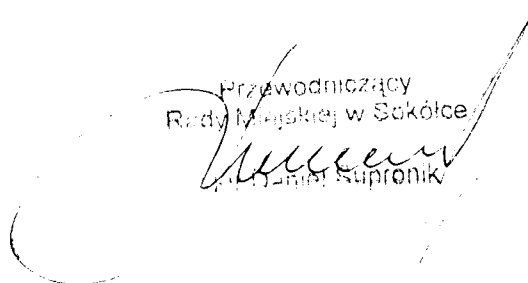 Przewodniczący
Rady Miejskiej w Sokółce
Daniel Supronik